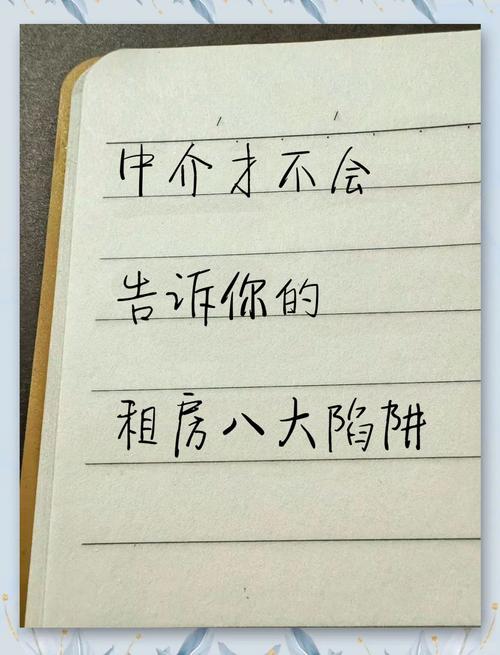 中介才不会
告诉你的
租房八大陷阱